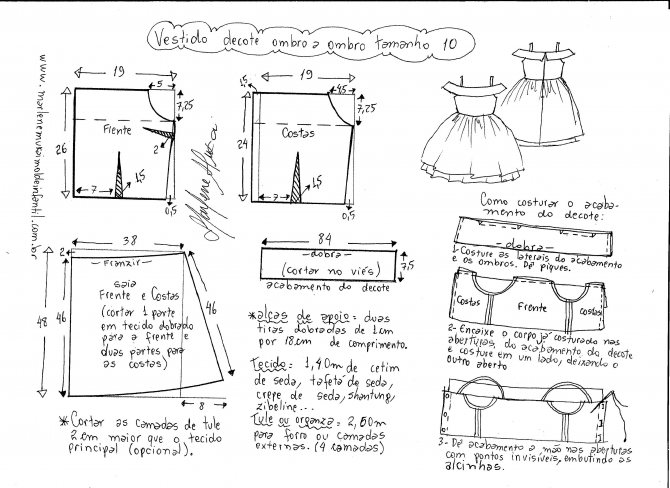 Vestido decote ombro a ombro tamanho 10
www.marlenemukaimoldeinfantil.com.br
19
5
7,25
26
Frente
2
7
1,5
0,5
Marlene Mukai
1,5
19
4,5
7,25
24
Costas
7
1,5
0,5
38
2
Franzir
48
46
saia
Frente e Costas
(cortar 1 parte
em tecido dobrado
para a frente e
duas partes para
as costas)
46
8
* Cortar as camadas de tule
2 cm maior que o tecido
principal (opcional).
84
dobra
(cortar no viés)
7,5
acabamento do decote
* alças de apoio: duas
tiras dobradas de 1cm
por 18cm de comprimento.
Tecido: 1,40m de cetim
de seda, tafetá de seda,
crepe de seda, shantung,
zibeline...
Tule ou organza: 2,50m
para forro ou camadas
externas. (4 camadas)
Como costurar o acaba-
mento do decote:
dobra
1- Costure as laterais do acabamento
e os ombros. Dê piques.
Costas
Frente
costas
2- Encaixe o corpo já costurado nas
aberturas, do acabamento do decote
e costure em um lado, deixando o
outro aberto
3- Dê acabamento a mão nas aberturas
com pontos invisíveis, embutindo as
alcinhas.